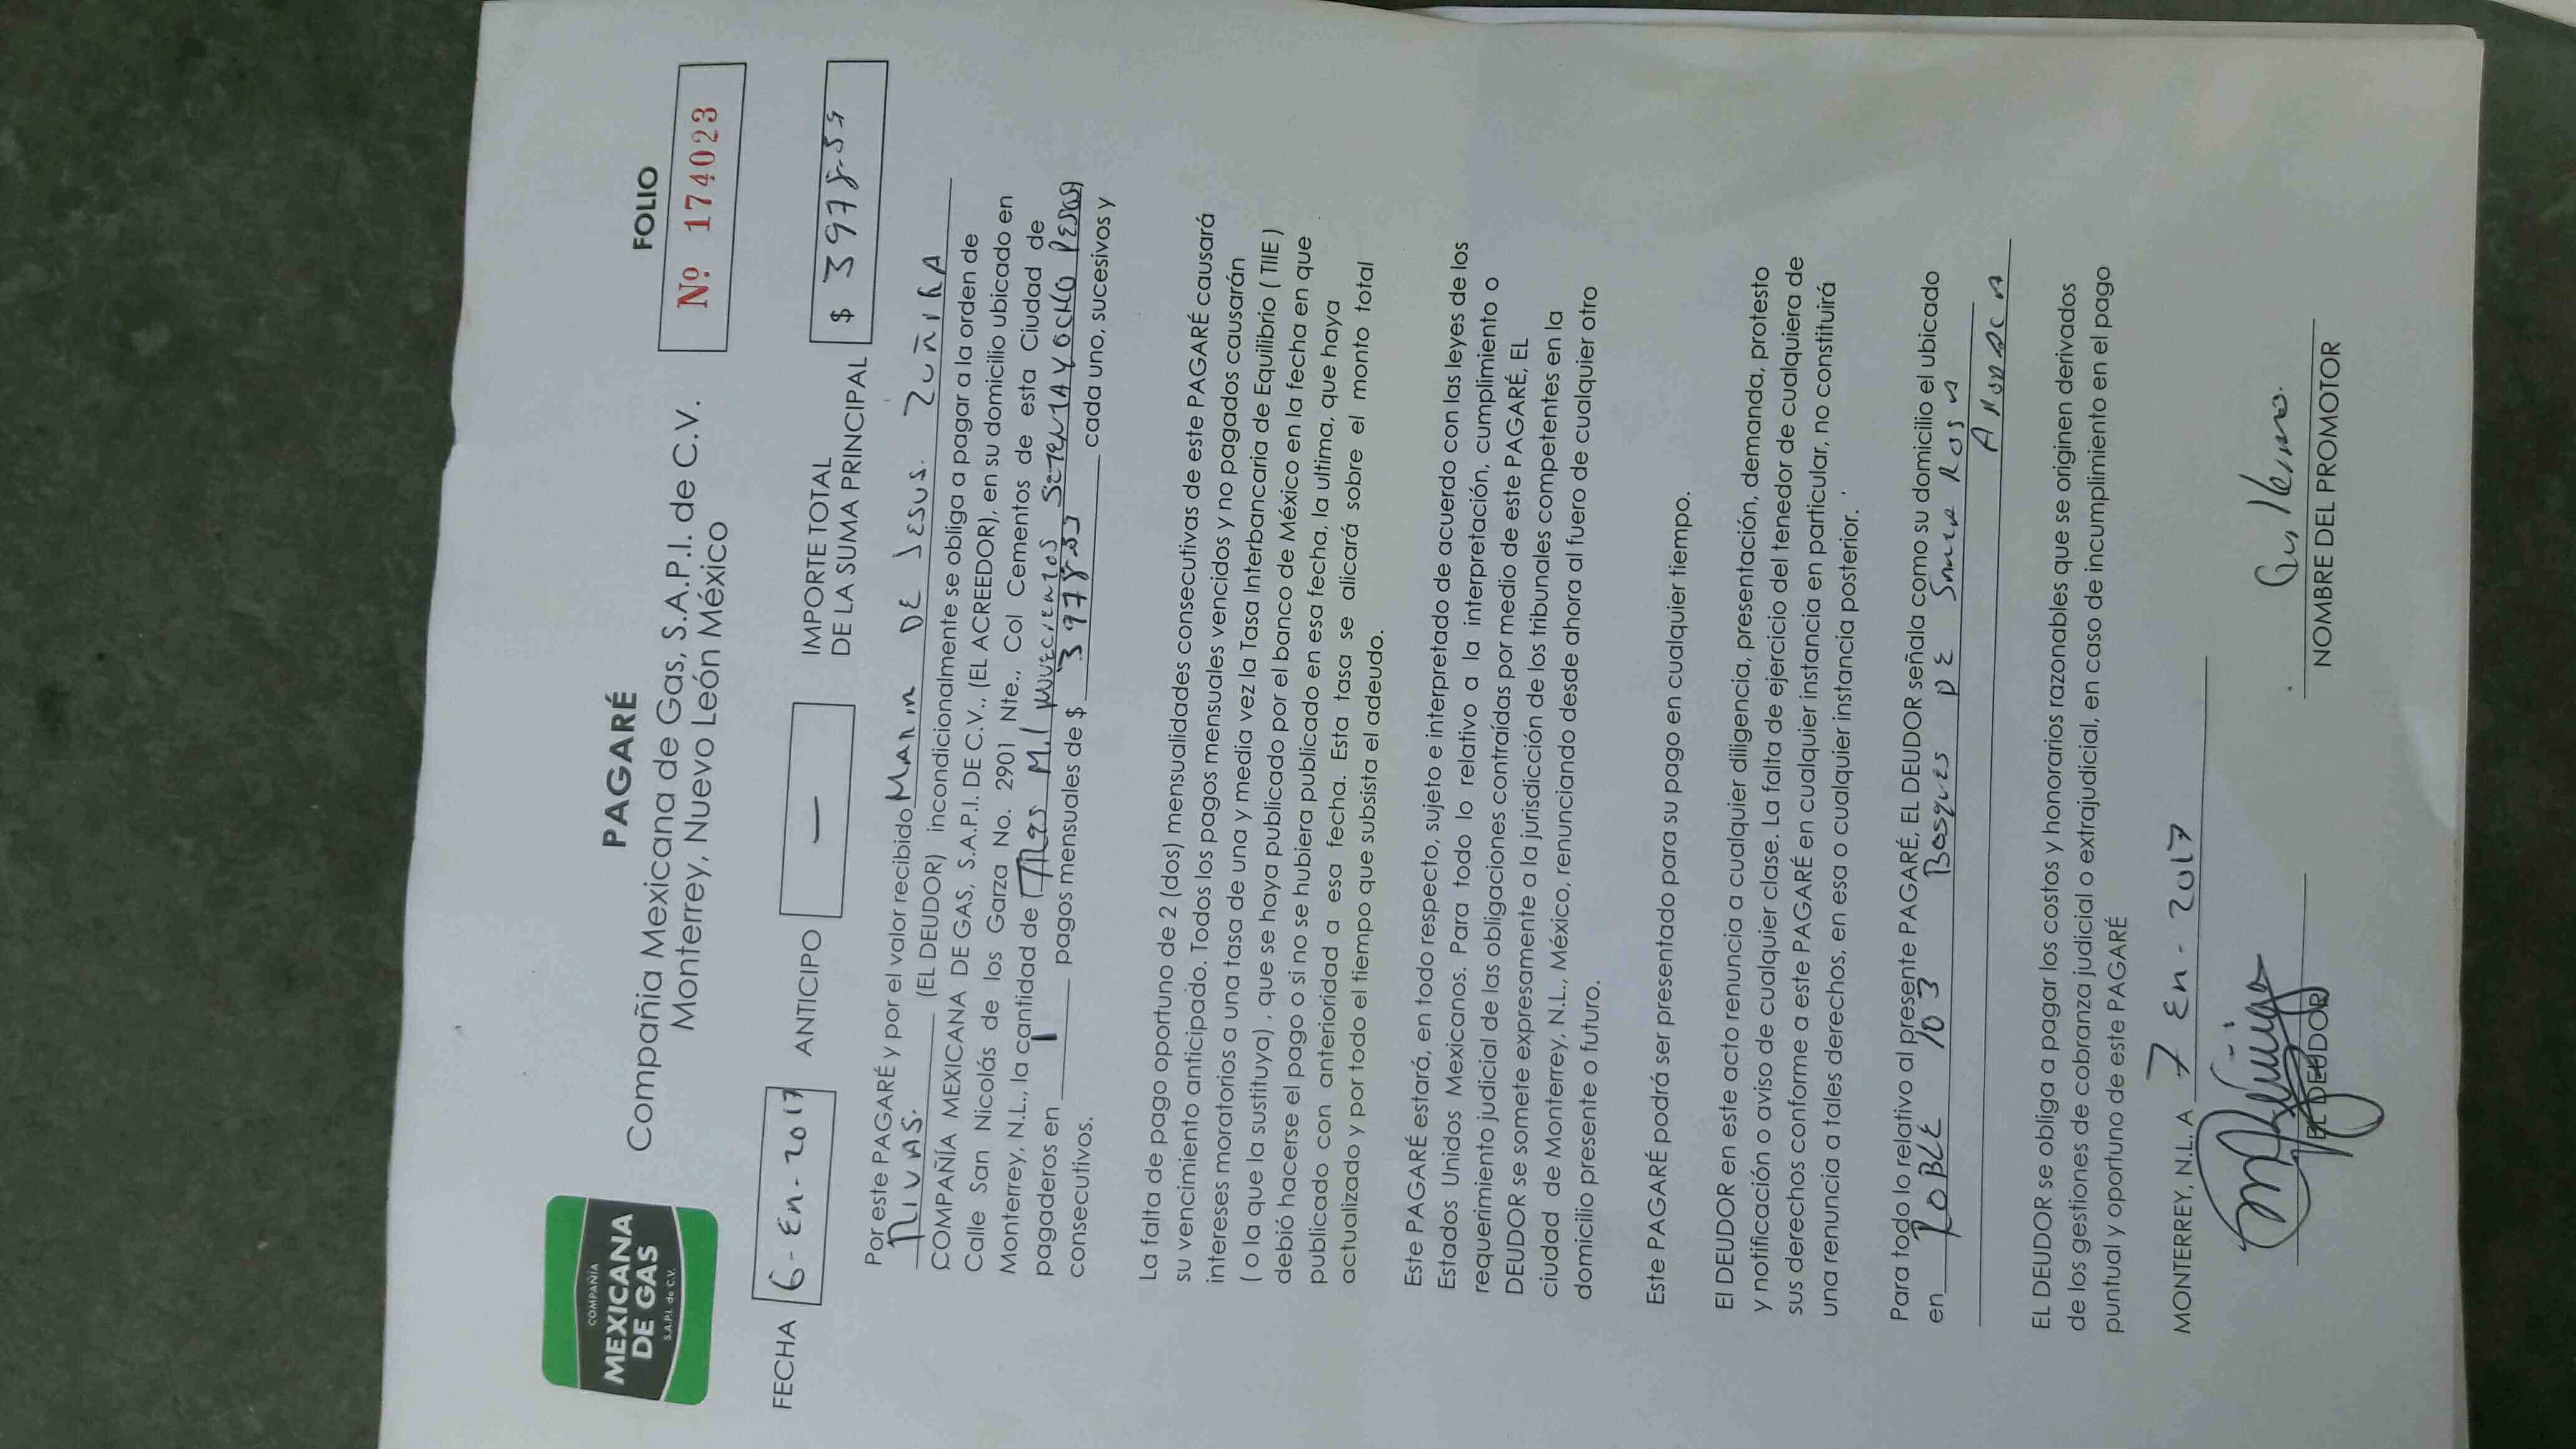 COMPAÑIA
MEXICANA
DE GAS
S.A.P.I. de C.V.
PAGARÉ
Compañia Mexicana de Gas, S.A.P.I. de C.V.
Monterrey, Nuevo León México
FOLIO
Nº 174023
FECHA 6-En-2017 ANTICIPO — IMPORTE TOTAL
DE LA SUMA PRINCIPAL $ 3978.
Por este PAGARÉ y por el valor recibido MARIA DE JESUS. ZUÑIRA
RIVAS. (EL DEUDOR) incondicionalmente se obliga a pagar a la orden de
COMPAÑÍA MEXICANA DE GAS, S.A.P.I. DE C.V., (EL ACREEDOR), en su domicilio ubicado en
Calle San Nicolás de los Garza No. 2901 Nte., Col Cementos de esta Ciudad de
Monterrey, N.L., la cantidad de (TRES Mil Novecientos SETENTA Y OCHO PESOS)
pagaderos en 1 pagos mensuales de $ 3978. cada uno, sucesivos y
consecutivos.
La falta de pago oportuno de 2 (dos) mensualidades consecutivas de este PAGARÉ causará
su vencimiento anticipado. Todos los pagos mensuales vencidos y no pagados causarán
intereses moratorios a una tasa de una y media vez la Tasa Interbancaria de Equilibrio ( TIIE )
( o la que la sustituya) , que se haya publicado por el banco de México en la fecha en que
debió hacerse el pago o si no se hubiera publicado en esa fecha, la ultima, que haya
publicado con anterioridad a esa fecha. Esta tasa se alicará sobre el monto total
actualizado y por todo el tiempo que subsista el adeudo.
Este PAGARÉ estará, en todo respecto, sujeto e interpretado de acuerdo con las leyes de los
Estados Unidos Mexicanos. Para todo lo relativo a la interpretación, cumplimiento o
requerimiento judicial de las obligaciones contraídas por medio de este PAGARÉ, EL
DEUDOR se somete expresamente a la jurisdicción de los tribunales competentes en la
ciudad de Monterrey, N.L., México, renunciando desde ahora al fuero de cualquier otro
domicilio presente o futuro.
Este PAGARÉ podrá ser presentado para su pago en cualquier tiempo.
El DEUDOR en este acto renuncia a cualquier diligencia, presentación, demanda, protesto
y notificación o aviso de cualquier clase. La falta de ejercicio del tenedor de cualquiera de
sus derechos conforme a este PAGARÉ en cualquier instancia en particular, no constituirá
una renuncia a tales derechos, en esa o cualquier instancia posterior.
Para todo lo relativo al presente PAGARÉ, EL DEUDOR señala como su domicilio el ubicado
en ROBLE 103 Bosques DE Santa Rosa
APODACA
EL DEUDOR se obliga a pagar los costos y honorarios razonables que se originen derivados
de los gestiones de cobranza judicial o extrajudicial, en caso de incumplimiento en el pago
puntual y oportuno de este PAGARÉ
MONTERREY, N.L. A 7 En - 2017
EL DEUDOR
NOMBRE DEL PROMOTOR